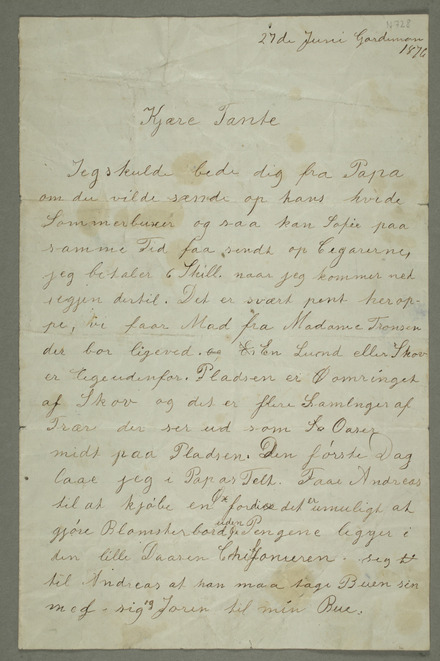 N728
27de Juni Gardemon
1876
Kjære Tante
Jeg skulde bede dig fra Papa
om du vilde sænde op hans hvide
Sommerbuxer og saa kan Sofie paa
samme Tid faa sendt op Cegarerne,
jeg betaler 6 Skill. naar jeg kommer ned
igjen dertil. Det er svært pent herop-
pe, vi faar Mad fra Madame Tronsen
der bor ligeved. En Lund eller Skov
er lige udenfor. Pladsen er Oomringet
af Skov og det er flere Samlinger af
Trær der ser ud som Oaser
midt paa Pladsen. Den første Dag
laae jeg i Papas Telt. Faae Andreas
til at kjøbe en fordi det er umuligt at
gjøre Blomsterbord uden Pengene ligger i
den lille Daasen Chifonieren. sig
til Andreas at han maa tage Buen sin
med - sig og Joren til min Bue.